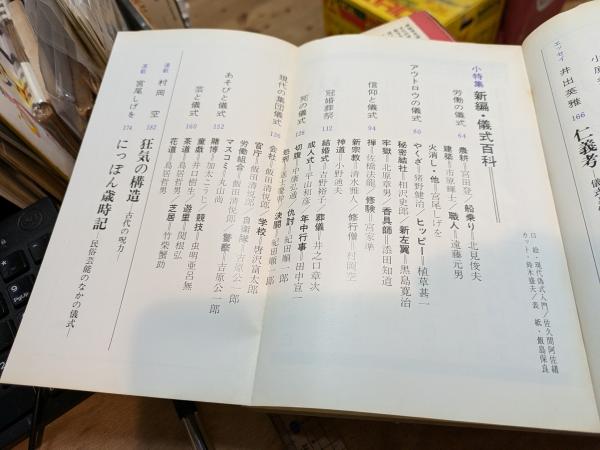 エッセイ
井出英雅 166 仁義考
口絵・現代儀式入門/佐久間阿佐緒
カット・鈴木康夫/表紙・飯島保良
小特集 新編・儀式百科
労働の儀式 64 農耕=宮田登/船乗り=北見俊夫
建築=市原輝士/職人=遠藤元男
火消し・他=宮尾しげを
アウトロウの儀式 80 やくざ=猪野健治/ヒッピー=植草甚一
秘密結社=相沢史郎/新左翼=黒島寛治
牢獄=北原章男/香具師=添田知道
信仰と儀式 94 禅=佐橋法龍/修験=宮家準
新宗教=清水雅人/修行僧=村岡空
神道=小野迪夫
冠婚葬祭 112 結婚式=吉野裕子/葬儀=井之口章次
成人式=平山和彦/年中行事=田中宣一
死の儀式 126 切腹=中康弘通/仇討=紀田順一郎
処刑=逆士愛宕/決闘=紀田順一郎
現代の集団儀式 136 会社=飯田清悦郎/学校=唐沢富太郎
官庁=飯田清悦郎/自衛隊=吉原公一郎
労働組合=飯田清悦郎/警察=吉原公一郎
マスコミ=丸山尚
あそびと儀式 152 賭博=加太こうじ/競技=虫明亜呂無
童戯=井口樹生/
芸と儀式 160 茶道=島居哲男/遊里=関根弘
花道=島居哲男/芝居=竹柴蟹助
連載 村岡空 182 狂気の構造—古代の呪力—
連載 宮尾しげを 174 にっぽん歳時記—民俗芸能のなかの儀式—